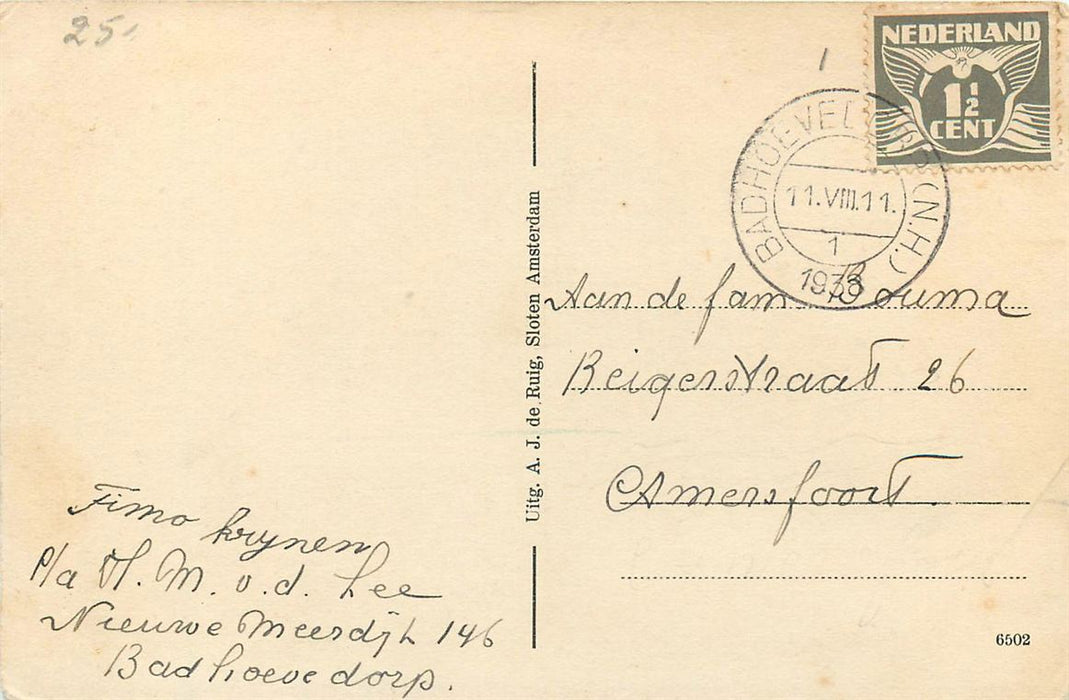 25,
NEDERLAND
1½
CENT
BADHOEVEDORP (N.H.)
11.VIII.11.
1
1938
Aan de fam Bouma
Reigerstraat 26
Amersfoort.
Uitg. A. J. de Ruig, Sloten Amsterdam
Timo krynen
P/a H. M. v. d. Lee
Nieuwe Meerdijk 146
Badhoevedorp.
6502